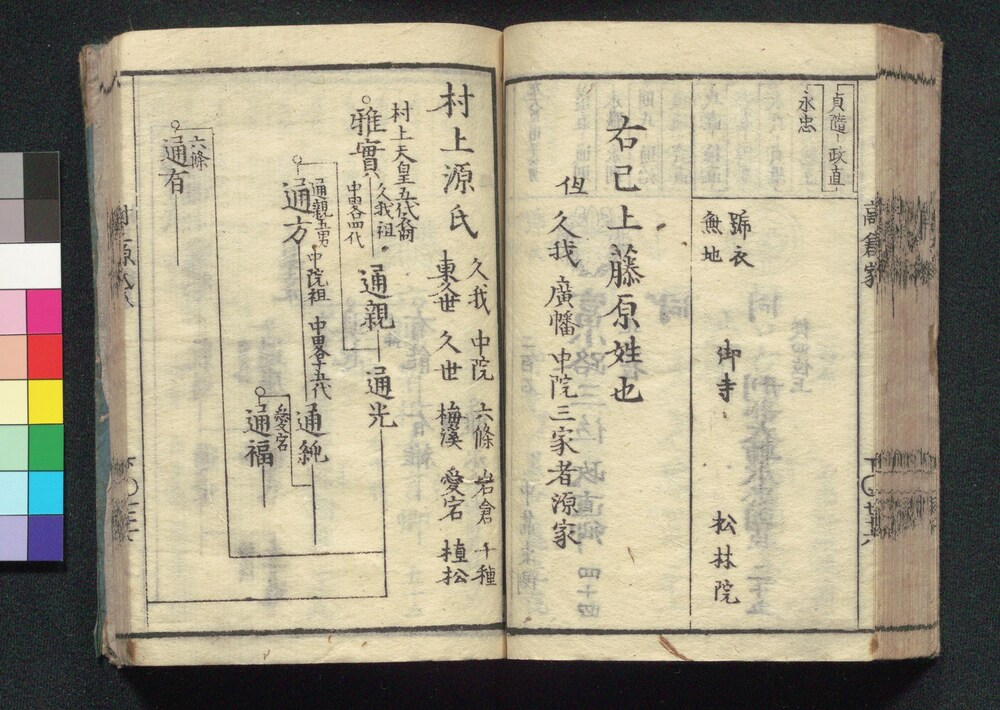 貞隆 政直
永忠
號衣 御寺 松林院
無地
右已上藤原姓也
但
久我廣幡中院三家者源家
高倉家
村上源氏
久我 中院 六條 岩倉 千種
東久世 久世 梅溪 愛宕 植松
村上天皇五代裔
雅實
久我祖
中畧四代
通親
通光
通方
通親五男
中院祖
中畧十五代
通純
愛宕
通福
六條
通有